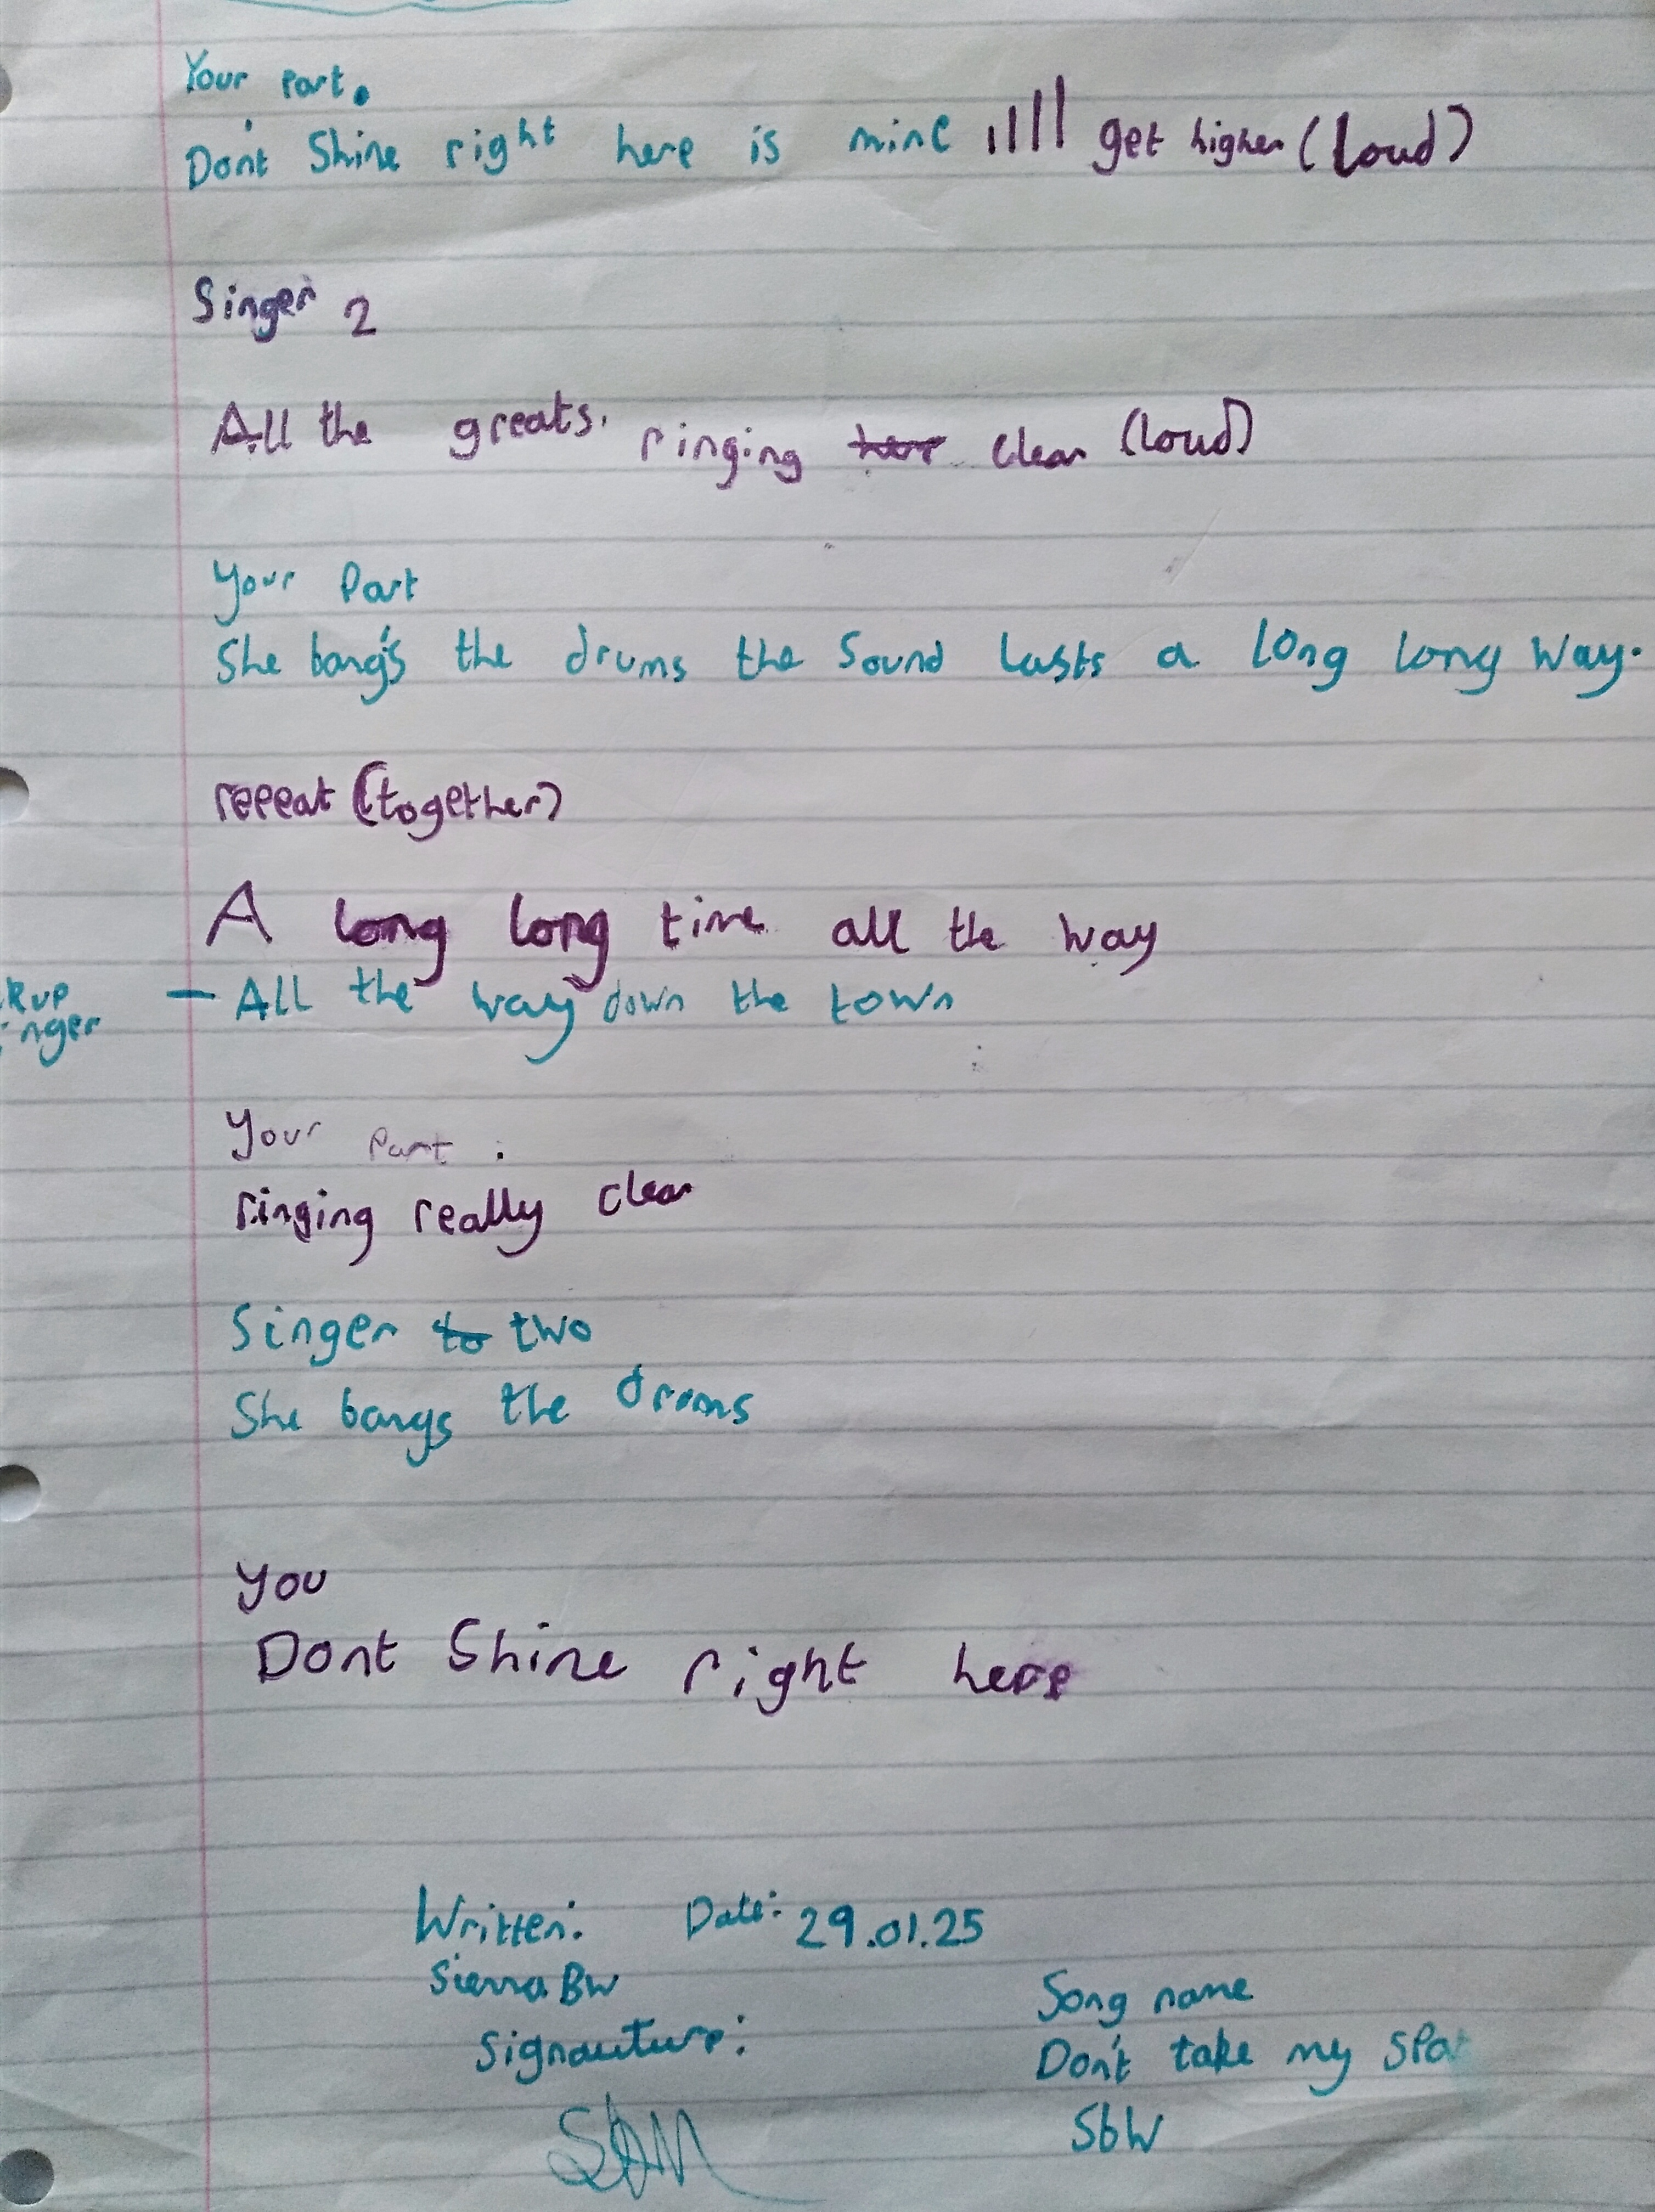 Your part.
Don't Shine right here is mine ıllll get higher (loud)
Singer 2
All the greats. ringing clear (loud)
Your Part
She bang's the drums the Sound lasts a long long way.
repeat (together)
A long long time all the way
kup
inger
— All the way down the town
Your Part :
ringing really clear
Singer to two
She bangs the drums
you
Dont Shine right here
Written: Date: 29.01.25
Sierra BW
Signauture:
Song name
Don't take my Spot
SbW